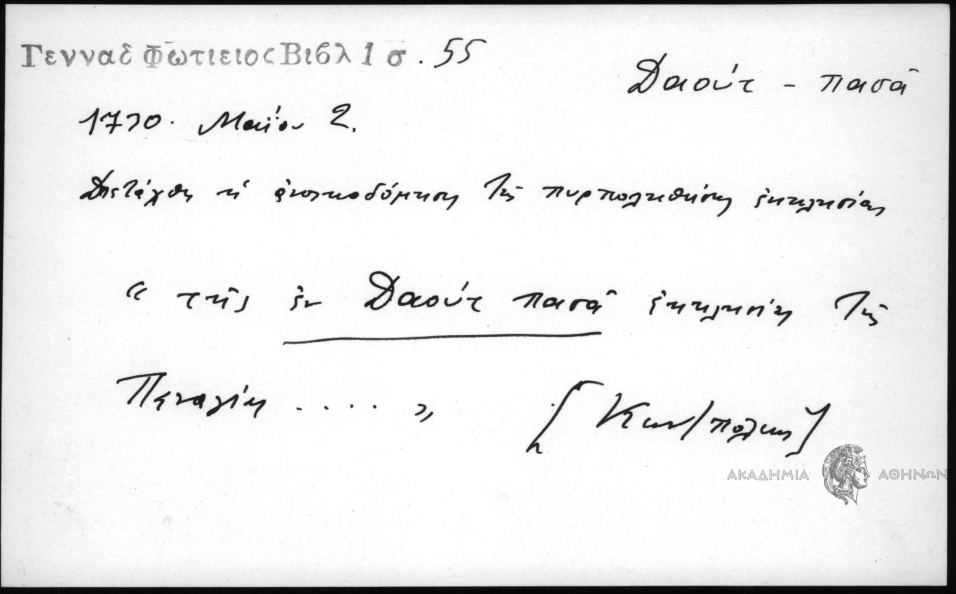 Γενναδ Φωτιειος Βιβλ 1 σ. 55
Δαούτ - πασᾶ
1730. Μαΐου 2.
Διετάχθη ἡ ἀνοικοδόμησις τῆς πυρποληθείσης ἐκκλησίας
“ τῆς ἐν Δαούτ πασᾶ ἐκκλησίας τῆς
Παναγίας . . . . ”
[Κων/πόλεως]
ΑΚΑΔΗΜΙΑ ΑΘΗΝΩΝ